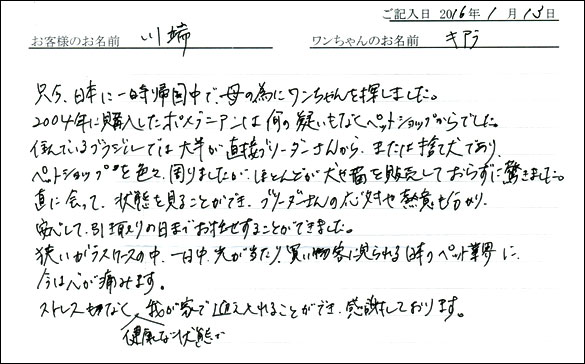 ご記入日 2016年 1月 13日
お客様のお名前 川端 ワンちゃんのお名前 キアラ
只今、日本に一時帰国中で、母の為にワンちゃんを探しました。
2004年に購入したポメラニアンは何の疑いもなくペットショップからでした。
住んでいるブラジルでは大半が直接ブリーダーさんから、または捨て犬であり、
ペットショップを色々、周りましたが、ほとんどが犬や猫を販売しておらずに驚きました。
直に会って、状態を見ることができ、ブリーダーさんの応対や熱意も分かり、
安心して、引き取りの日までお任せすることができました。
狭いガラスケースの中、一日中、光が当たり、買い物客に見られる日本のペット業界に、
今は心が痛みます。
ストレス少なく、我が家で迎え入れることができ、感謝しております。
健康な状態で